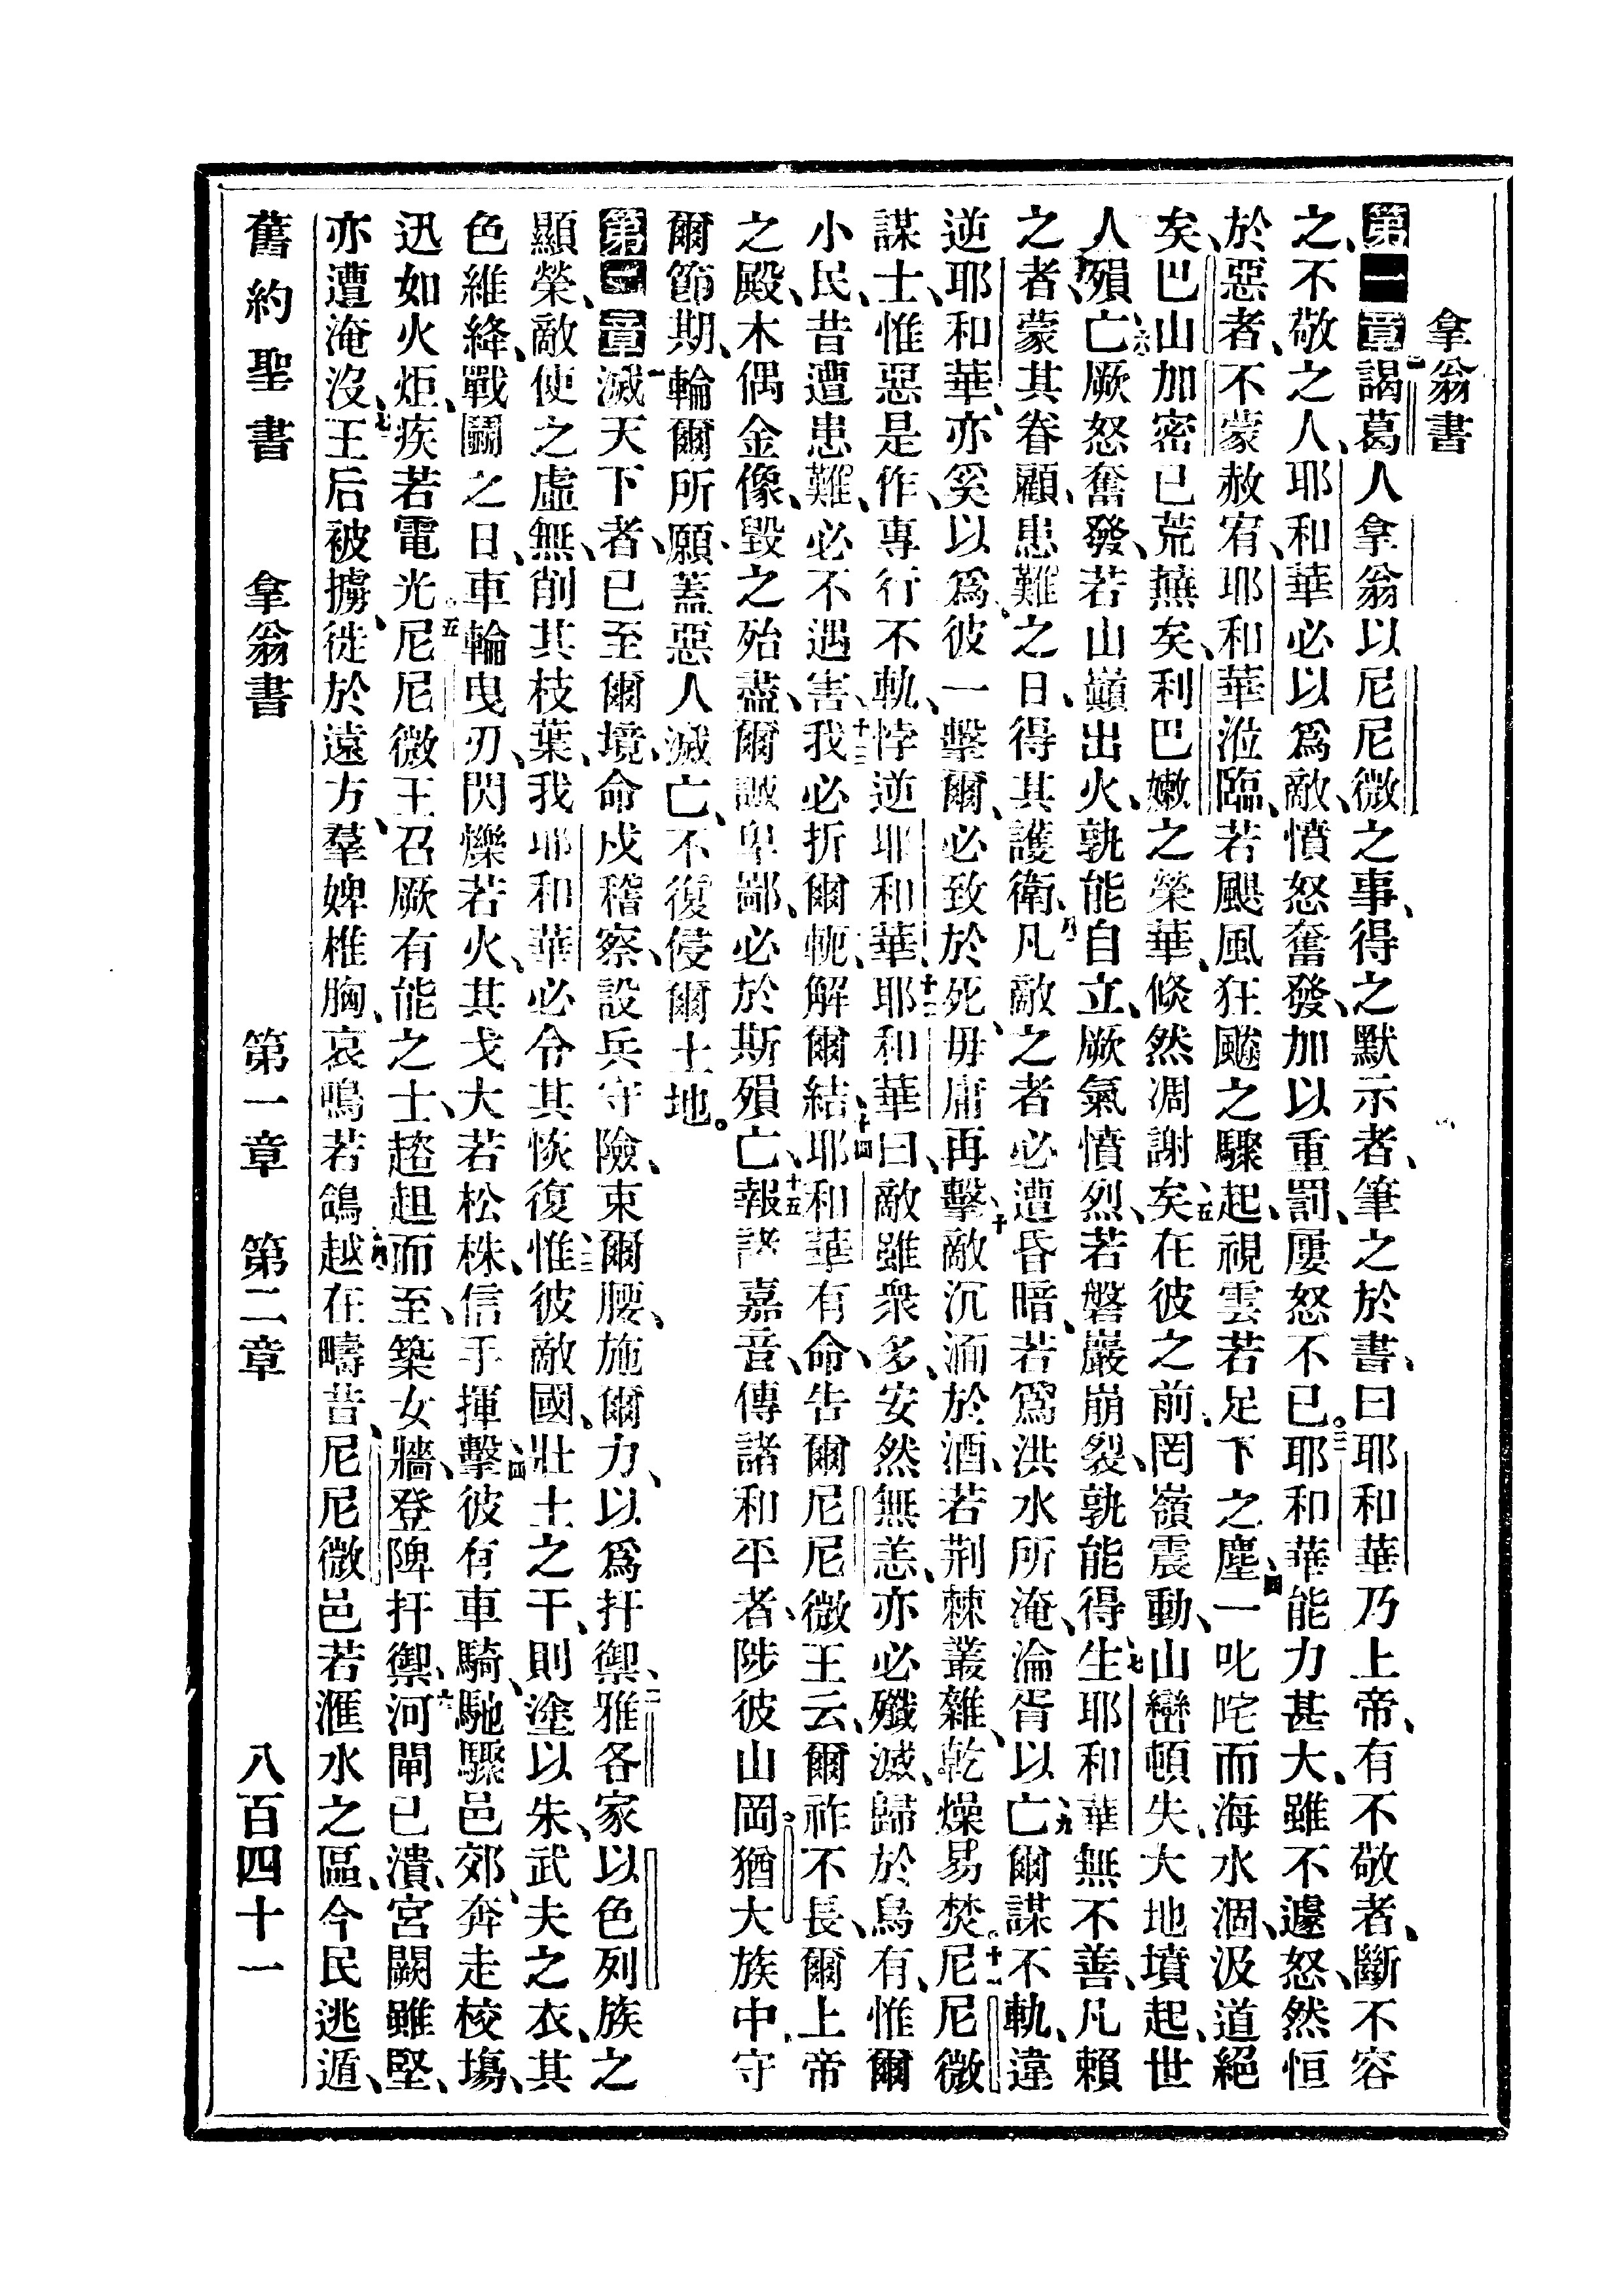 拿翁書
第一章一謁葛人拿翁以尼尼微之事、得之默示者、筆之於書、曰耶和華乃上帝、有不敬者、斷不容
之、不敬之人、耶和華必以爲敵、憤怒奮發、加以重罰、屢怒不已。三耶和華能力甚大、雖不遽怒、然恒
於惡者、不蒙赦宥、耶和華涖臨、若颶風狂飈之驟起、視雲若足下之塵、四一叱咤而海水涸、汲道絕
矣、巴山加密已荒蕪矣、利巴嫩之榮華、倐然凋謝矣、五在彼之前、岡嶺震動、山巒頓失、大地墳起、世
人殞亡、六厥怒奮發、若山巔出火、孰能自立、厥氣憤烈、若磐巖崩裂、孰能得生、七耶和華無不善、凡賴
之者、蒙其眷顧、患難之日、得其護衛、八凡敵之者、必遭昏暗、若爲洪水所淹、淪胥以亡、九爾謀不軌、違
逆耶和華、亦奚以爲、彼一擊爾、必致於死、毋庸再擊、十敵沉湎於酒、若荆棘叢雜、乾燥易焚。十一尼尼微
謀士、惟惡是作、專行不軌、悖逆耶和華、十二耶和華曰、敵雖衆多、安然無恙、亦必殲滅、歸於烏有、惟爾
小民、昔遭患難、必不遇害、十三我必折爾軛、解爾結、十四耶和華有命、告爾尼尼微王云、爾祚不長、爾上帝
之殿、木偶金像、毀之殆盡、爾誠卑鄙、必於斯殞亡、十五報諸嘉音、傳諸和平者、陟彼山岡、猶大族中、守
爾節期、輪爾所願、蓋惡人滅亡、不復侵爾土地。
第二章一滅天下者、已至爾境、命戍稽察、設兵守險、束爾腰、施爾力、以爲扞禦、二雅各家以色列族之
顯榮、敵使之虛無、削其枝葉、我耶和華必令其恢復、三惟彼敵國、壯士之干、則塗以朱、武夫之衣、其
色維絳、戰鬬之日、車輪曳刃、閃爍若火、其戈大若松株、信手揮擊、四彼有車騎、馳驟邑郊、奔走校塲、
迅如火炬、疾若電光。五尼尼微王召厥有能之士、趦趄而至、築女牆、登陴扞禦、六河閘已潰、宮闕雖堅、
亦遭淹沒、七王后被擄、徙於遠方、羣婢椎胸、哀鳴若鴿、八越在疇昔、尼尼微邑若滙水之區、今民逃遁、
舊約聖書　拿翁書　第一章　第二章　八百四十一